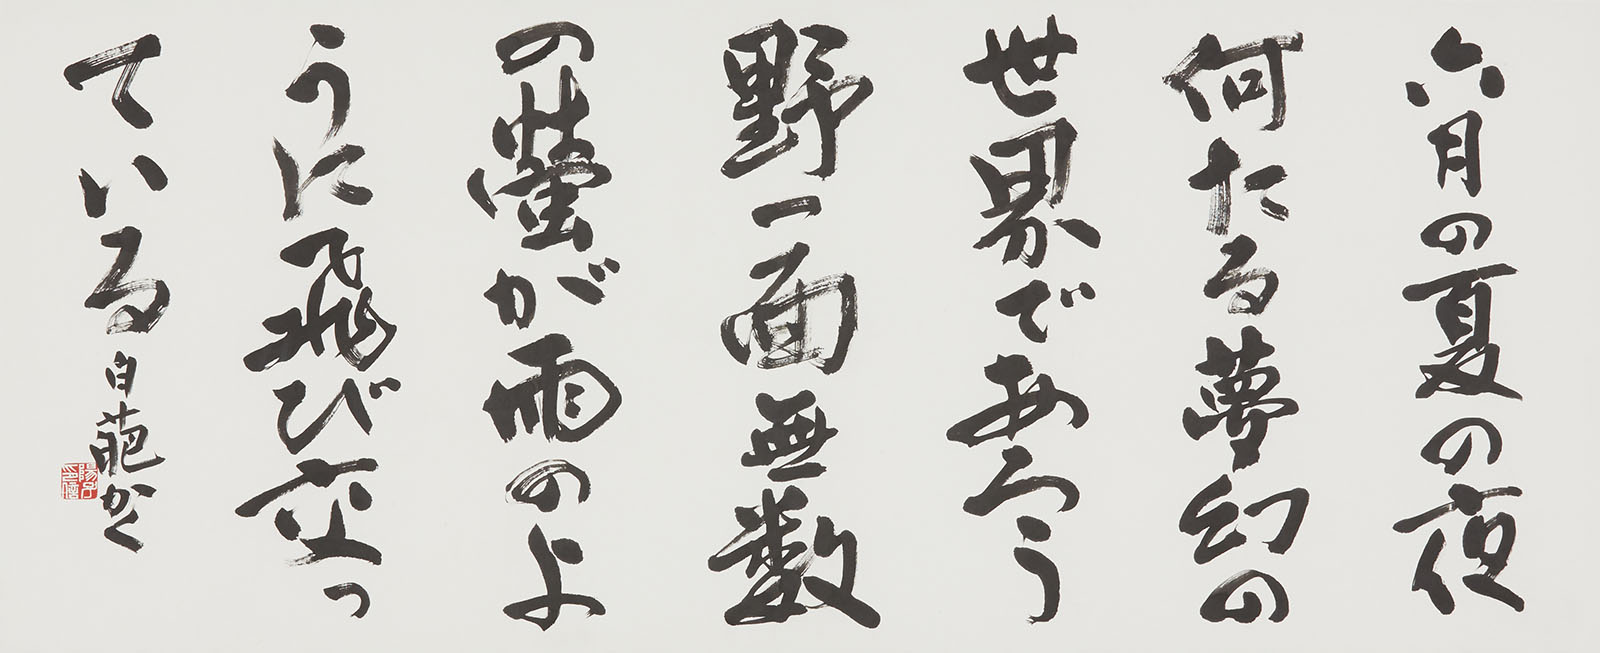 六月の夏の夜
何たる夢幻の
世界であろう
野一面無数
の螢が雨のよ
うに飛び交っ
ている
白葩かく